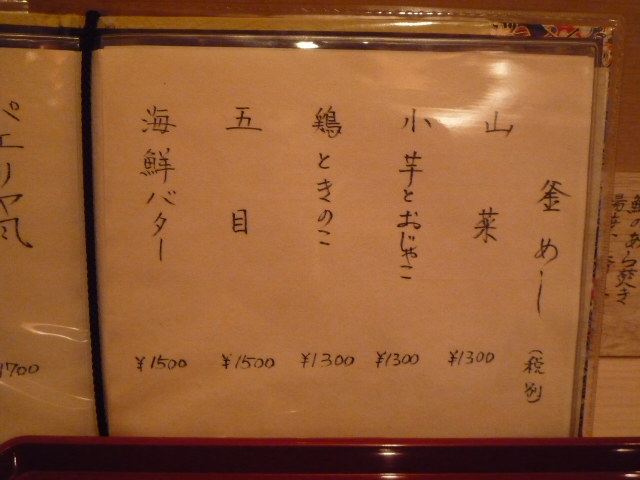 釜めし(税別)
山菜 ¥1300
小芋とおじゃこ ¥1300
鶏ときのこ ¥1300
五目 ¥1500
海鮮バター ¥1500
パエリヤ風 1700
あら焚き